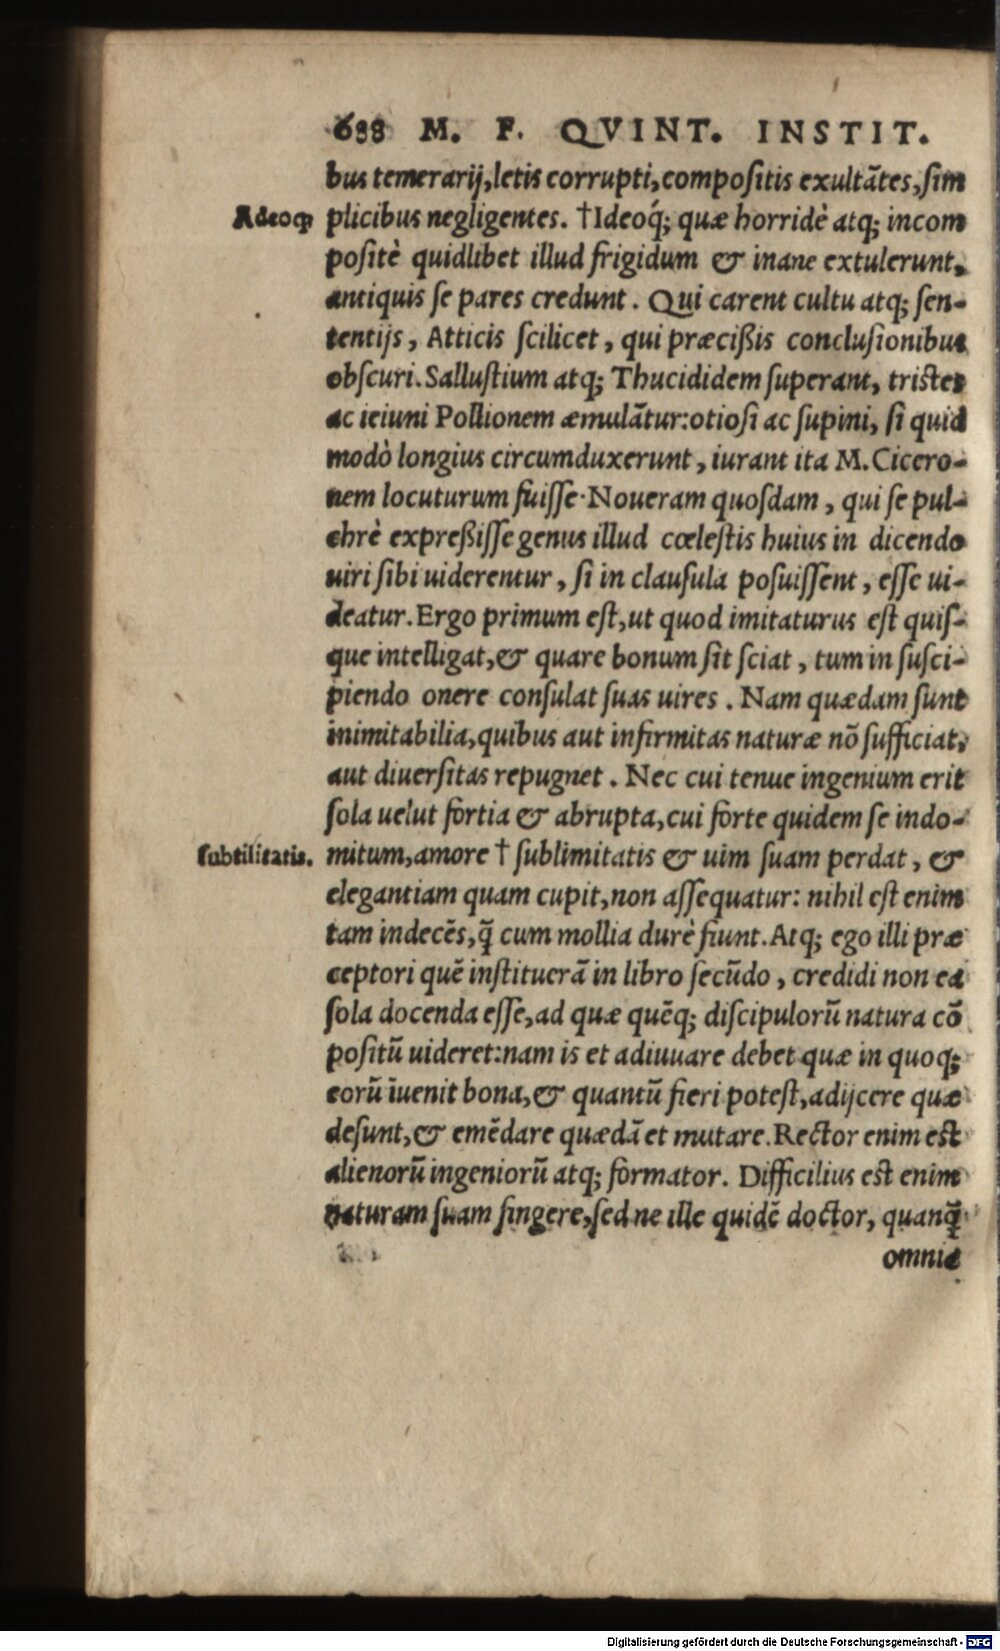 688 M. F. QVINT. INSTIT.
bus temerarij,letis corrupti,compositis exultãtes,sim
Adeoq́ꝫ plicibus negligentes. †Ideoq́; quæ horridè atq; incom
positè quidlibet illud frigidum & inane extulerunt,
antiquis se pares credunt. Qui carent cultu atq; sen-
tentijs, Atticis scilicet, qui præcißis conclusionibus
obscuri.Sallustium atq; Thucididem superant, tristes
ac ieiuni Pollionem æmulãtur:otiosi ac supini, si quid
modò longius circumduxerunt, iurant ita M. Cicero-
nem locuturum fuisse·Noueram quosdam, qui se pul-
chrè expreßisse genus illud cœlestis huius in dicendo
uiri sibi uiderentur, si in clausula posuissent, esse ui-
deatur.Ergo primum est,ut quod imitaturus est quis-
que intelligat,& quare bonum sit sciat, tum in susci-
piendo onere consulat suas uires. Nam quædam sunt
inimitabilia,quibus aut infirmitas naturæ nõ sufficiat,
aut diuersitas repugnet. Nec cui tenue ingenium erit
sola uelut fortia & abrupta,cui forte quidem se indo-
subtilitatis. mitum,amore † sublimitatis & uim suam perdat, &
elegantiam quam cupit,non assequatur: nihil est enim
tam indecẽs,q̃ cum mollia durè fiunt.Atq; ego illi præ
ceptori quẽ instituerã in libro secũdo, credidi non ea
sola docenda esse,ad quæ quẽq; discipulorũ natura cõ
positũ uideret:nam is et adiuuare debet quæ in quoq;
eorũ ĩuenit bona,& quantũ fieri potest,adijcere quæ
desunt,& emẽdare quædã et mutare.Rector enim est
alienorũ ingeniorũ atq; formator. Difficilius est enim
naturam suam fingere,sed ne ille quidẽ doctor, quanq̃
omnia
Digitalisierung gefördert durch die Deutsche Forschungsgemeinschaft - DFG